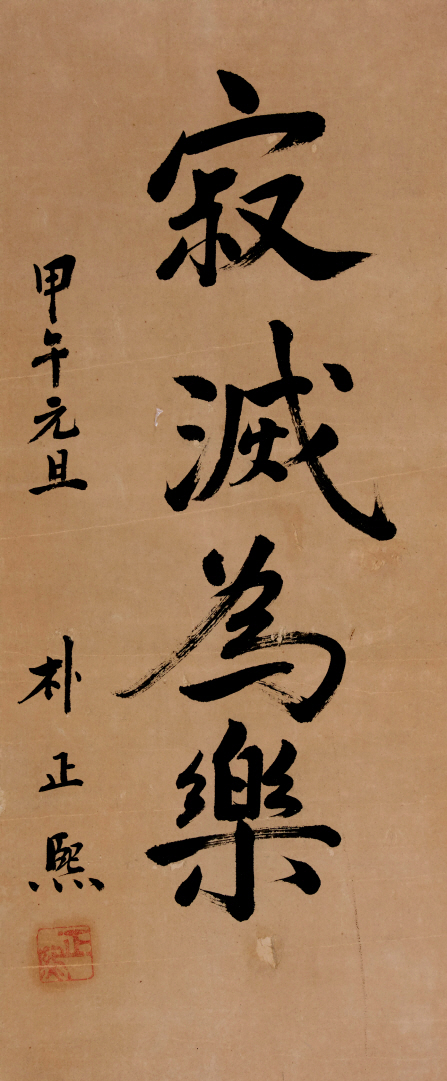 寂滅為樂
甲午元旦
朴正熙